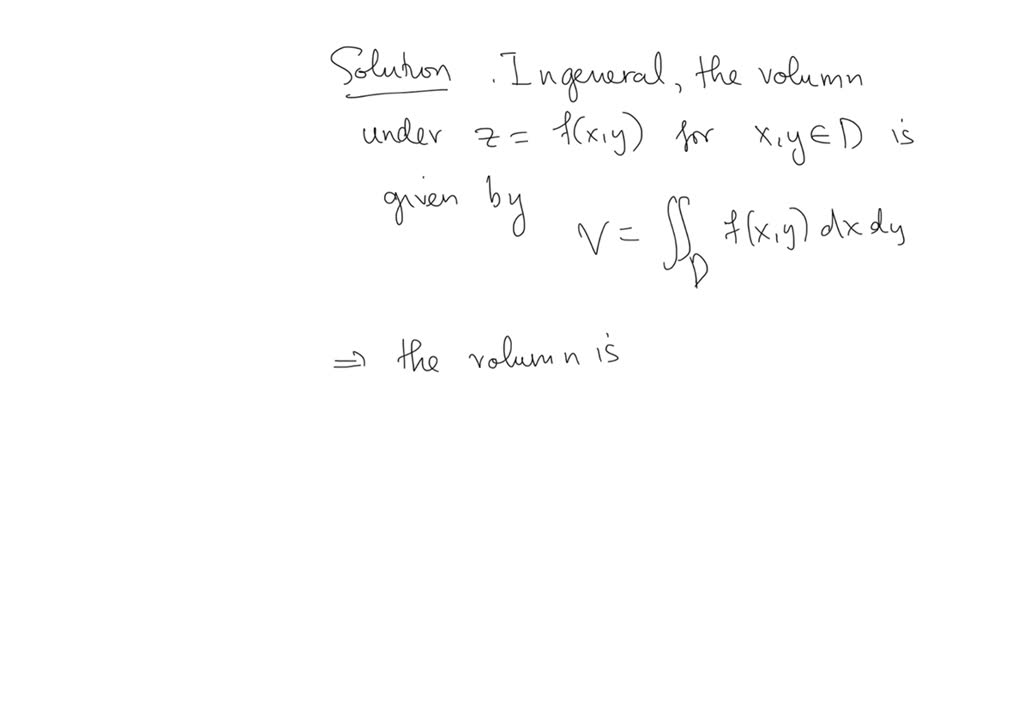 Solution . In general, the volumn
under z = f(x,y) for x,y ∈ D is
given by
V = ∬_D f(x,y) dx dy
⇒ the volumn is